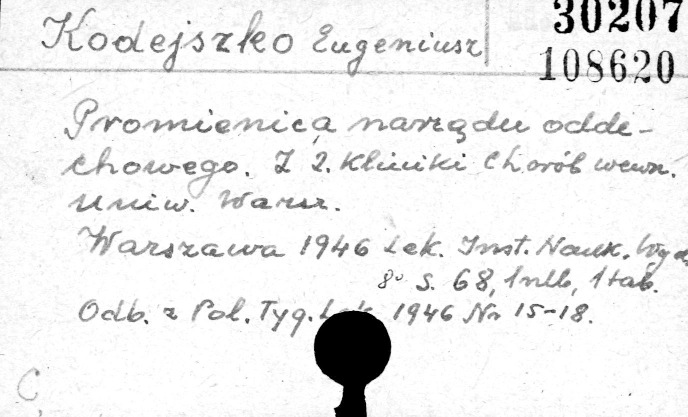 Kodejszko Eugeniusz
30207
108620
Promienica narządu odde-
chowego. Z 2. Kliniki Chorób wewn.
Uniw. Warsz.
Warszawa 1946 Lek. Inst. Nauk. Wyd.
8° S. 68, 1 nlb, 1 tab.
Odb. z Pol. Tyg. Lek. 1946 Nr 15-18.
C